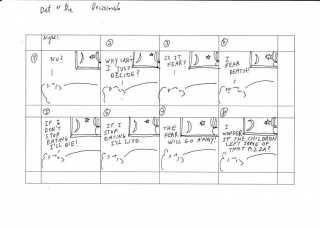 Night!
①
②
③
④
NU?
WHY CAN'T
I JUST
DECIDE?
IS IT
FEAR?
I
FEAR
DEATH!
IF I
DON'T
STOP
EATING
I'LL DIE!
IF I
STOP
EATING
I'LL LIVE.
THE
FEAR
WILL GO AWAY!
I
WONDER
IF THE CHILDREN
LEFT SOME OF
THAT PIZZA?